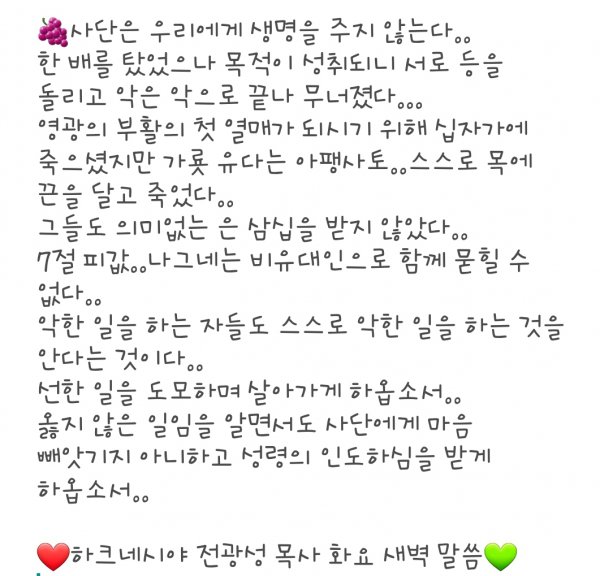 🍇사단은 우리에게 생명을 주지 않는다..
한 배를 탔었으나 목적이 성취되니 서로 등을
돌리고 악은 악으로 끝나 무너졌다...
영광의 부활의 첫 열매가 되시기 위해 십자가에
죽으셨지만 가룟 유다는 아팽사토..스스로 목에
끈을 달고 죽었다..
그들도 의미없는 은 삼십을 받지 않았다..
7절 피값..나그네는 비유대인으로 함께 묻힐 수
없다..
악한 일을 하는 자들도 스스로 악한 일을 하는 것을
안다는 것이다..
선한 일을 도모하며 살아가게 하옵소서..
옳지 않은 일임을 알면서도 사단에게 마음
빼앗기지 아니하고 성령의 인도하심을 받게
하옵소서..
❤️하크네시야 전광성 목사 화요 새벽 말씀💚